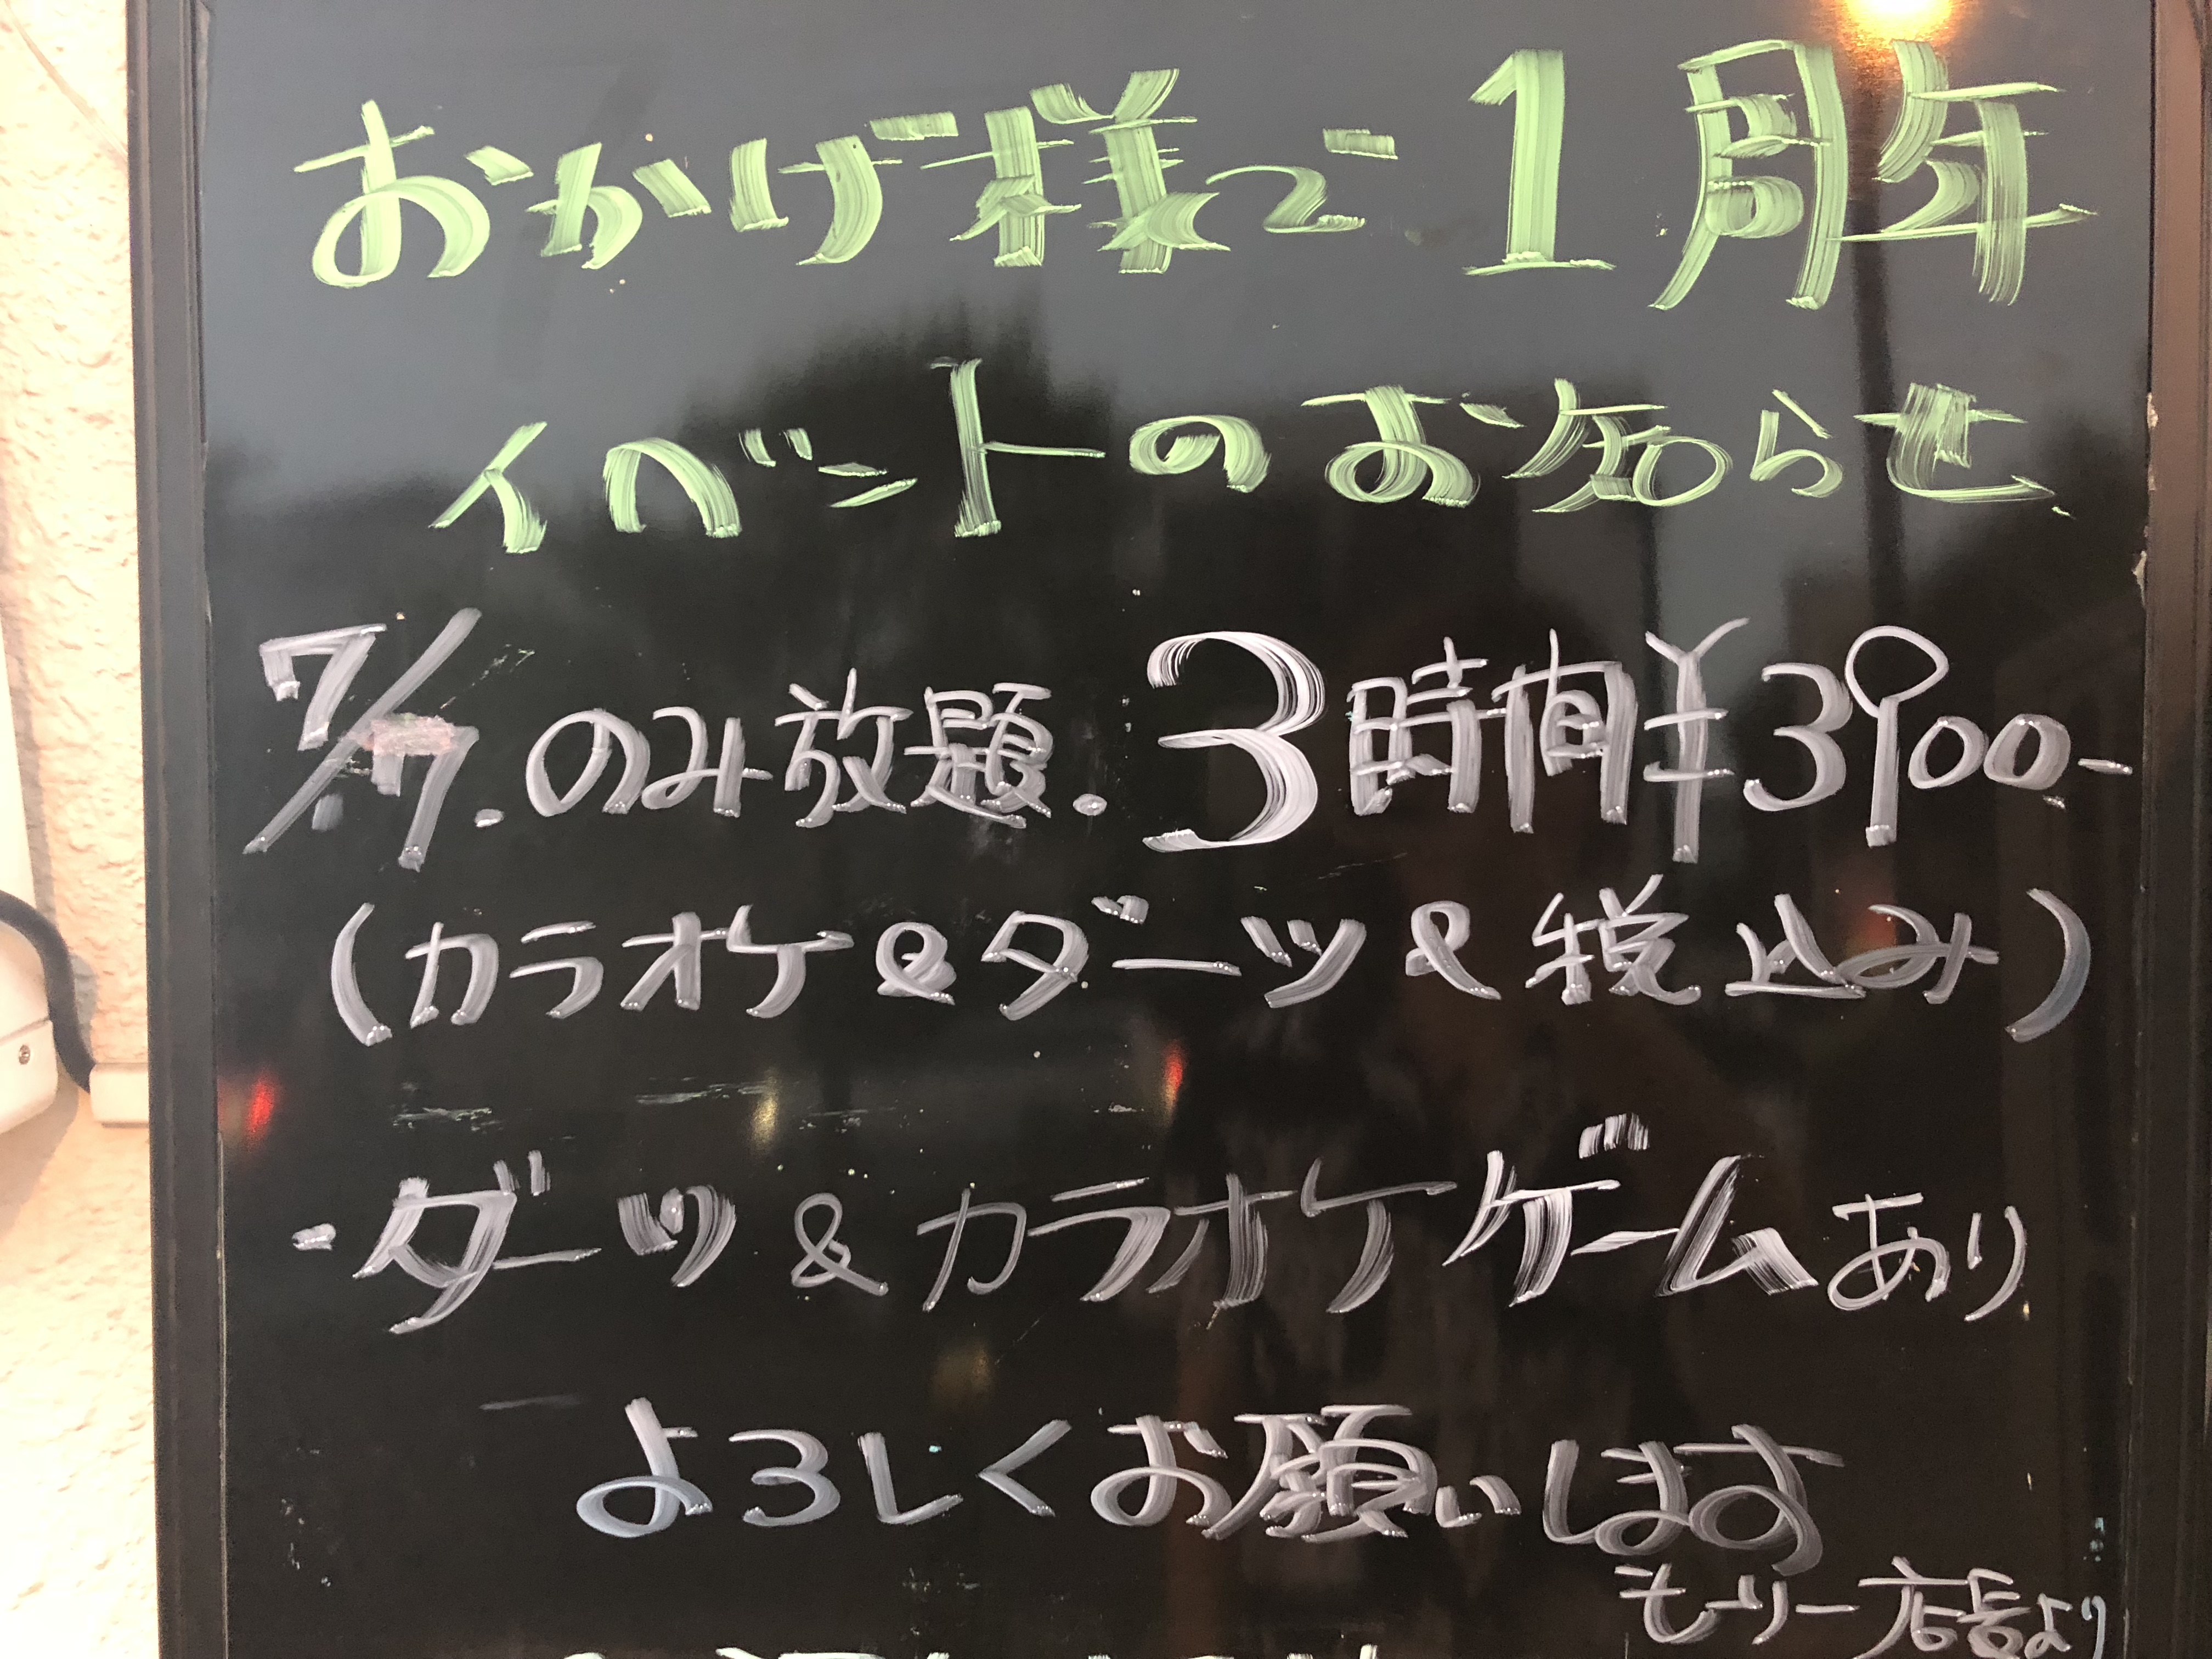 おかげ様で1周年
イベントのお知らせ
7/7.のみ放題.3時間¥3900-
(カラオケ&ダーツ&税込み)
・ダーツ&カラオケゲームあり
よろしくお願いします
モーリー店長より